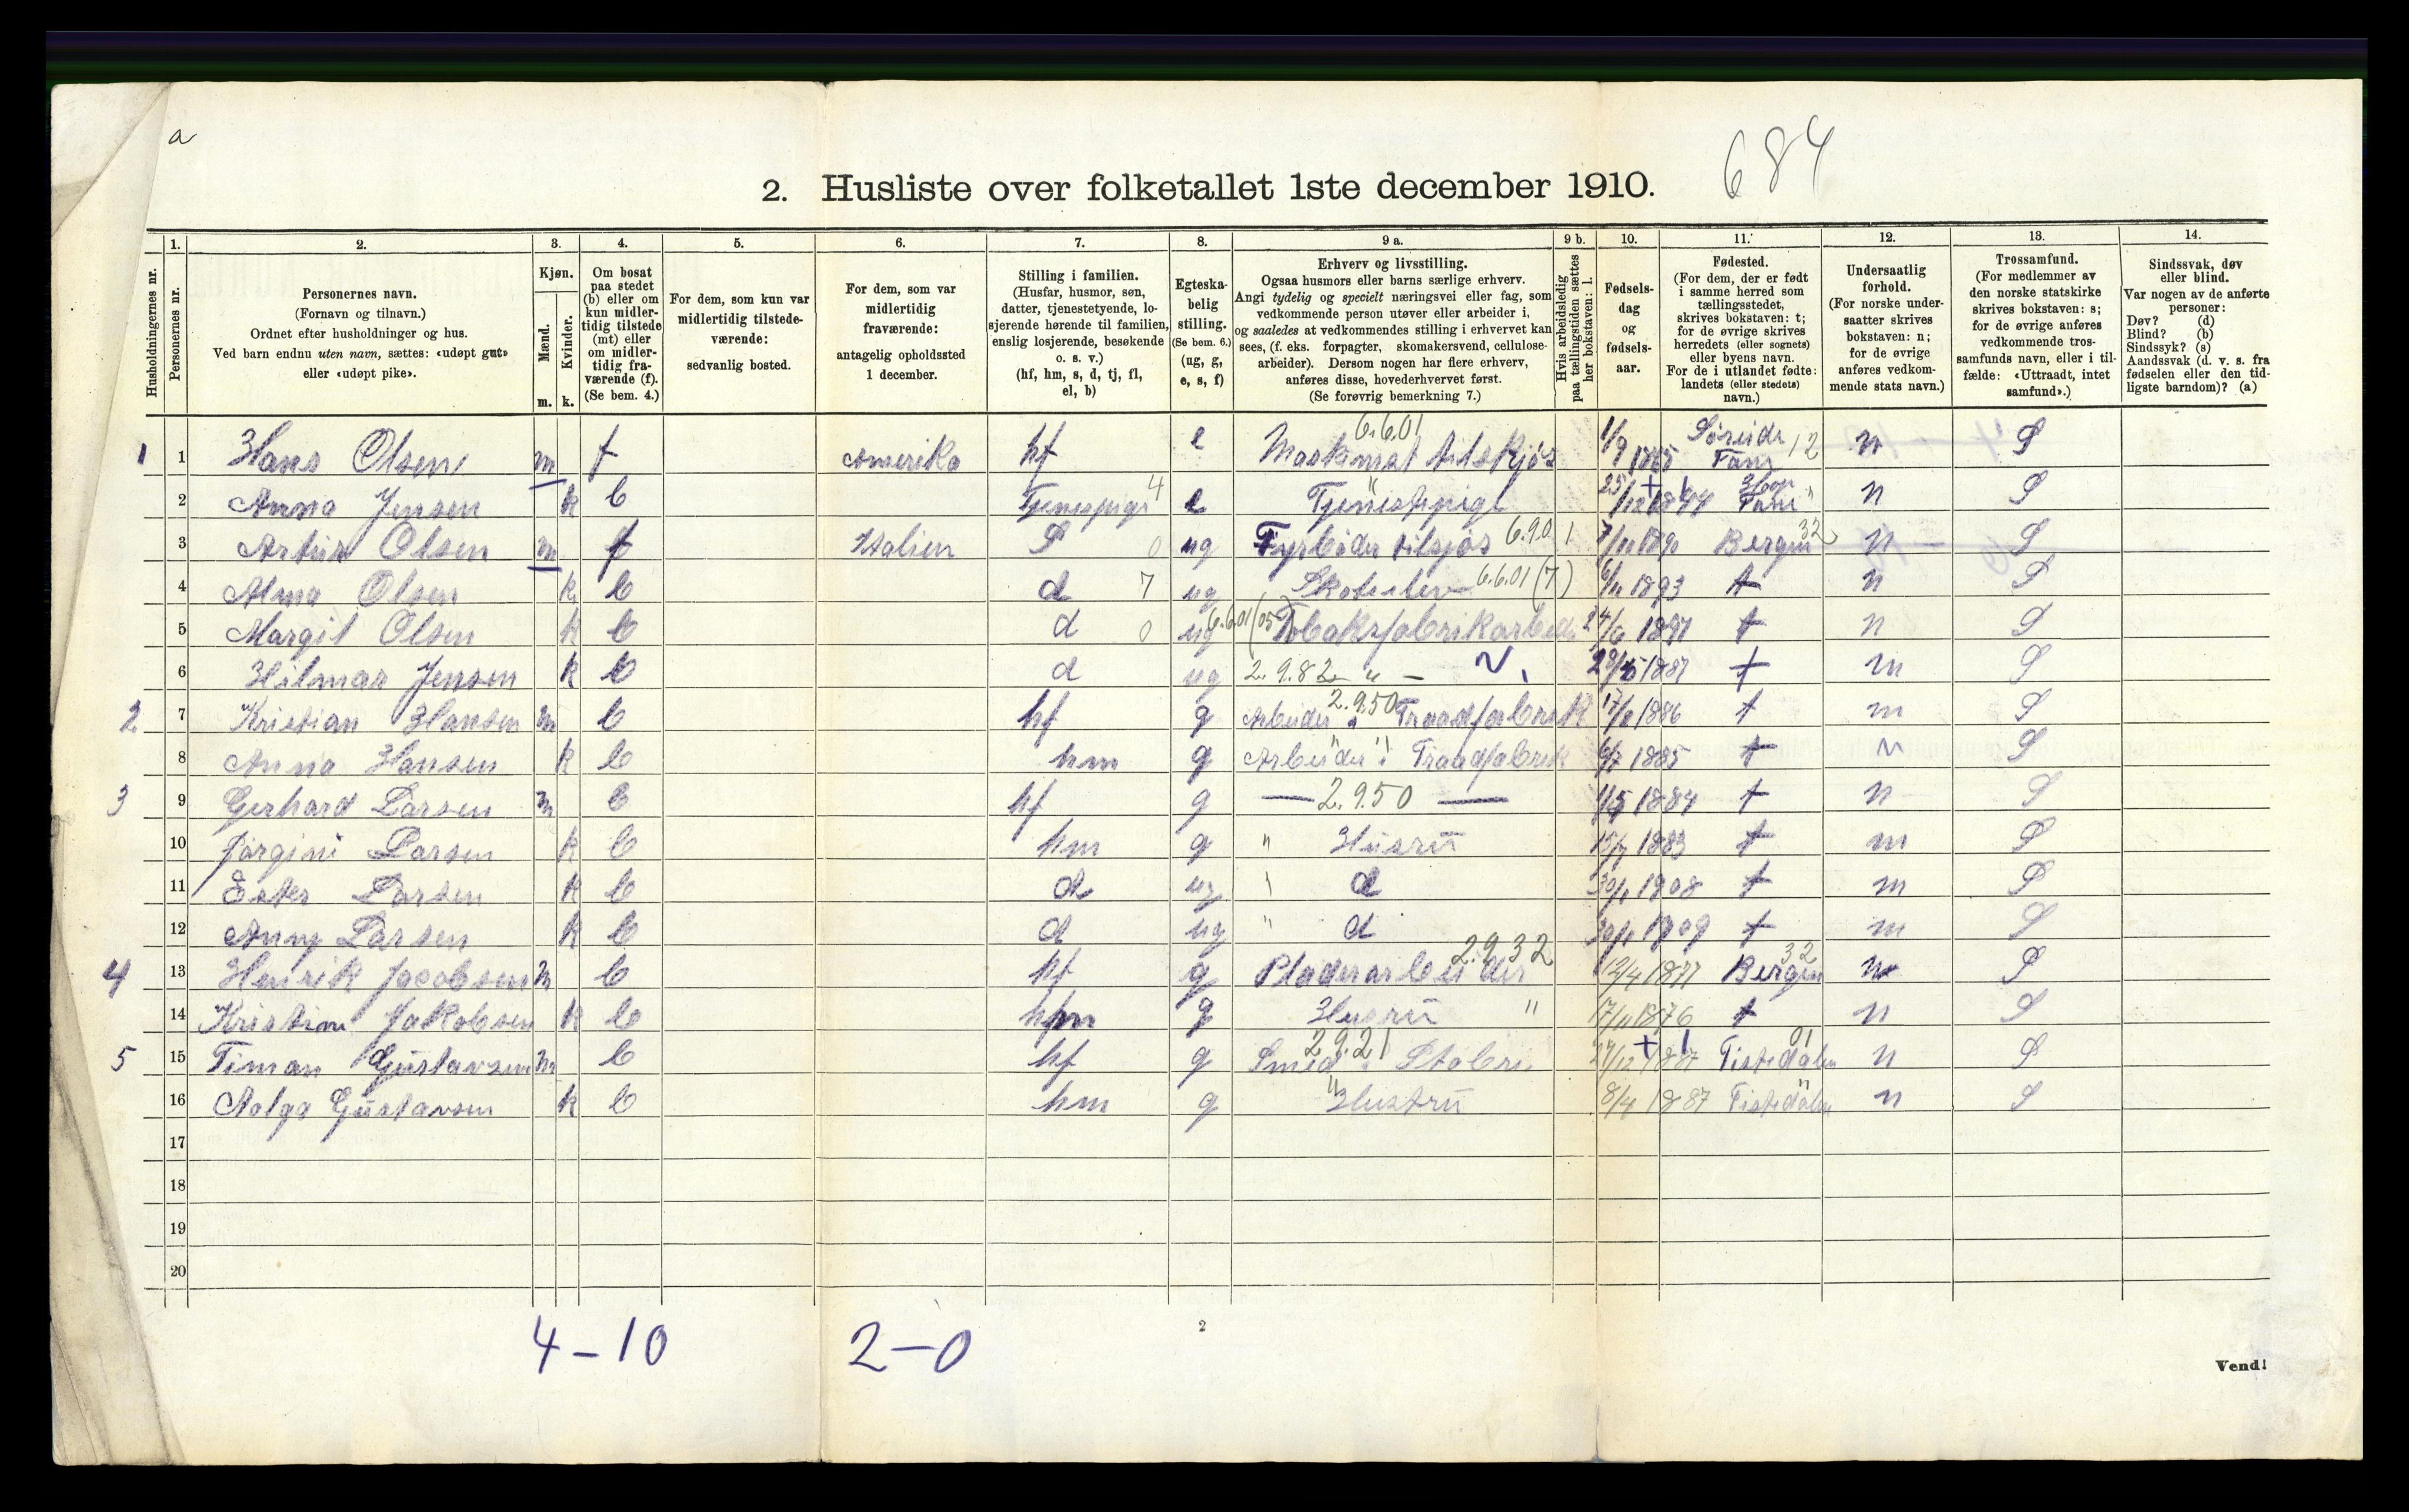 a
684
2. Husliste over folketallet 1ste december 1910.
Husholdningernes nr.
1.
Personernes nr.
2.
Personernes navn.
(Fornavn og tilnavn.)
Ordnet efter husholdninger og hus.
Ved barn endnu uten navn, sættes: «udøpt gut»
eller «udøpt pike».
3.
Kjøn.
Mænd.
Kvinder.
m. k.
4.
Om bosat
paa stedet
(b) eller om
kun midler-
tidig tilstede
(mt) eller
om midler-
tidig fra-
værende (f).
(Se bem. 4.)
5.
For dem, som kun var
midlertidig tilstede-
værende:
sedvanlig bosted.
6.
For dem, som var
midlertidig
fraværende:
antagelig opholdssted
1 december.
7.
Stilling i familien.
(Husfar, husmor, søn,
datter, tjenestetyende, lo-
sjerende hørende til familien,
enslig losjerende, besøkende
o. s. v.)
(hf, hm, s, d, tj, fl,
el, b)
8.
Egteska-
belig
stilling.
(Se bem. 6.)
(ug, g,
e, s, f)
9 a.
Erhverv og livsstilling.
Ogsaa husmors eller barns særlige erhverv.
Angi tydelig og specielt næringsvei eller fag, som
vedkommende person utøver eller arbeider i,
og saaledes at vedkommendes stilling i erhvervet kan
sees, (f. eks. forpagter, skomakersvend, cellulose-
arbeider). Dersom nogen har flere erhverv,
anføres disse, hovederhvervet først.
(Se forøvrig bemerkning 7.)
9 b.
Hvis arbeidsledig
paa tællingstiden sættes
her bokstaven: l.
10.
Fødsels-
dag
og
fødsels-
aar.
11.
Fødested.
(For dem, der er født
i samme herred som
tællingsstedet,
skrives bokstaven: t;
for de øvrige skrives
herredets (eller sognets)
eller byens navn.
For de i utlandet fødte:
landets (eller stedets)
navn.)
12.
Undersaatlig
forhold.
(For norske under-
saatter skrives
bokstaven: n;
for de øvrige
anføres vedkom-
mende stats navn.)
13.
Trossamfund.
(For medlemmer av
den norske statskirke
skrives bokstaven: s;
for de øvrige anføres
vedkommende tros-
samfunds navn, eller i til-
fælde: «Uttraadt, intet
samfund».)
14.
Sindssvak, døv
eller blind.
Var nogen av de anførte
personer:
Døv? (d)
Blind? (b)
Sindssyk? (s)
Aandssvak (d. v. s. fra
fødselen eller den tid-
ligste barndom)? (a)
1 1 Hans Olsen m f Amerika hf e 6.6.01 1/9 1865 Søreide Fane 12 n S
2 Anna Jensen k b Tjenespige 4 e Tjenestepige 25/12 1844 Fane " n S
3 Artur Olsen m f Italien S 0 ug Fyrbøder tilsjøs 6.9.01 1890 Bergen 32 n S
4 Alma Olsen k b d 7 ug 6.6.01 (7) 1893 t n S
5 Margit Olsen k b d 0 ug 6.6.01 (05) Tobaksfabrikarbeider 24/6 1897 t n S
6 Hilmar Jensen k b d ug 2.9.82 " — 1887 t n S
2 7 Kristian Hansen m b hf g Arbeider i Traadfabrik 2.9.50 1886 t n S
8 Anna Hansen k b hm g Arbeider i Traadfabrik 6/7 1885 t n S
3 9 Gerhard Larsen m b hf g — 2.9.50 — 1884 t n S
10 Jørgine Larsen k b hm g " Husru 1883 t n S
11 Ester Larsen k b d ug " d 1908 t n S
12 Anny Larsen k b d ug " d 1909 t n S
4 13 Henrik Jacobsen m b hf g Pladearbeider 2.9.32 12/4 1877 Bergen 32 n S
14 Kristine Jakobsen k b hm g Husru " 17/11 1876 t n S
5 15 Timan Gustavsen m b hf g Smed 2.9.21 27/12 1887 Tistedalen 01 n S
16 Aalga Gustavsen k b hm g " Hustru 8/4 1887 Tistedalen " n S
17
18
19
20
4 – 10 2 – 0
2
Vend!